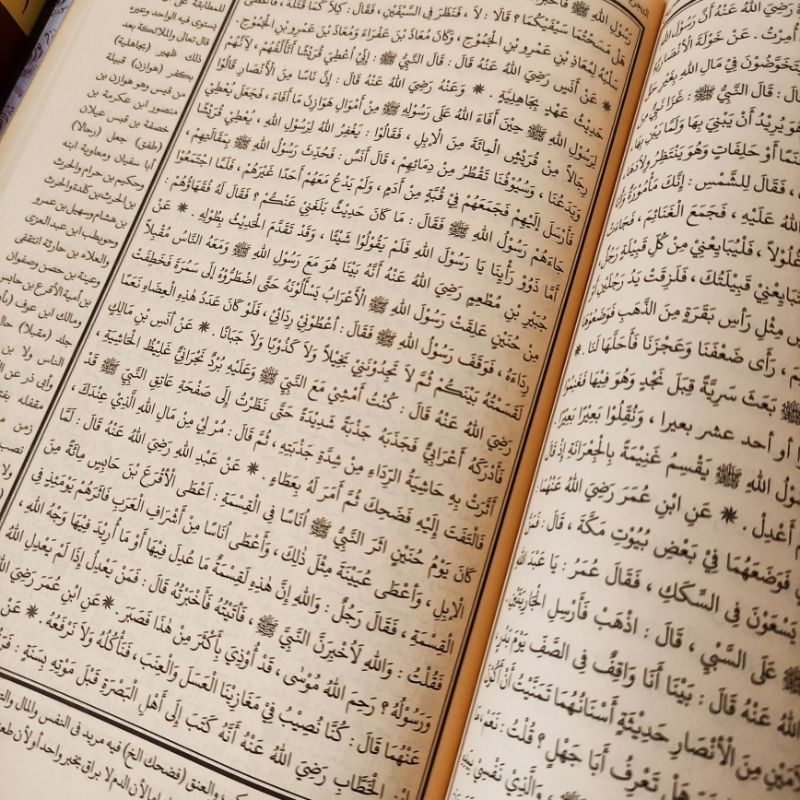 رَضِيَ اللهُ عَنْهُ أَنَّ رَسُولَ اللهِ
أُمِرْتُ . عَنْ خَوْلَةَ الْأَنْصَارِيَّةِ
يَتَخَوَّضُونَ فِي مَالِ اللهِ بِغَيْرِ
قَالَ : قَالَ النَّبِيُّ ﷺ : غَزَا نَبِيٌّ
وَهُوَ يُرِيدُ أَنْ يَبْنِيَ بِهَا وَلَمَّا يَبْنِ بِهَا
غَنَمًا أَوْ خَلِفَاتٍ وَهُوَ يَنْتَظِرُ وِلَادَهَا
، فَقَالَ لِلشَّمْسِ : إِنَّكِ مَأْمُورَةٌ
اللهُ عَلَيْهِ ، فَجَمَعَ الْغَنَائِمَ ، فَجَاءَتْ
غُلُولًا ، فَلْيُبَايِعْنِي مِنْ كُلِّ قَبِيلَةٍ رَجُلٌ
فَلْيُبَايِعْنِي قَبِيلَتُكَ ، فَلَزِقَتْ يَدُ رَجُلَيْنِ أَوْ
بِرَأْسٍ مِثْلِ رَأْسِ بَقَرَةٍ مِنَ الذَّهَبِ فَوَضَعُوهَا
رَأَى ضَعْفَنَا وَعَجْزَنَا فَأَحَلَّهَا لَنَا . ✷
ﷺ بَعَثَ سَرِيَّةً قِبَلَ نَجْدٍ وَهُوَ فِيهَا فَغَنِمُوا
أَوْ أَحَدَ عَشَرَ بَعِيرًا ، وَنُفِّلُوا بَعِيرًا بَعِيرًا
رَسُولُ اللهِ ﷺ يَقْسِمُ غَنِيمَةً بِالْجِعْرَانَةِ إِذْ قَالَ
أَعْدِلْ . ✷ عَنِ ابْنِ عُمَرَ رَضِيَ اللهُ عَنْهُمَا
فَوَضَعَهُمَا فِي بَعْضِ بُيُوتِ مَكَّةَ ، قَالَ : فَمَنَّ
يَسْعَوْنَ فِي السِّكَكِ ، فَقَالَ عُمَرُ : يَا عَبْدَ اللهِ
ﷺ عَلَى السَّبْيِ ، قَالَ : اذْهَبْ فَأَرْسِلِ الْجَارِيَتَيْنِ
اللهُ عَنْهُ قَالَ : بَيْنَا أَنَا وَاقِفٌ فِي الصَّفِّ يَوْمَ بَدْرٍ
مِنَ الْأَنْصَارِ حَدِيثَةٍ أَسْنَانُهُمَا تَمَنَّيْتُ أَنْ أَكُونَ
هَلْ تَعْرِفُ أَبَا جَهْلٍ ؟ قُلْتُ : نَعَمْ ،
ﷺ ، وَالَّذِي نَفْسِي بِيَدِهِ
رَسُولَ اللهِ ﷺ فَأَخْبَرَاهُ
هَلْ مَسَحْتُمَا سَيْفَيْكُمَا ؟ قَالَا : لَا ، فَنَظَرَ فِي السَّيْفَيْنِ ، فَقَالَ : كِلَاكُمَا قَتَلَهُ ،
سَلَبُهُ لِمُعَاذِ بْنِ عَمْرِو بْنِ الْجَمُوحِ ، وَكَانَ مُعَاذَ بْنَ عَفْرَاءَ وَمُعَاذَ بْنَ عَمْرِو بْنِ الْجَمُوحِ .
✷ عَنْ أَنَسٍ رَضِيَ اللهُ عَنْهُ قَالَ : قَالَ النَّبِيُّ ﷺ : إِنِّي أُعْطِي قُرَيْشًا أَتَأَلَّفُهُمْ ، لِأَنَّهُمْ
حَدِيثُ عَهْدٍ بِجَاهِلِيَّةٍ . ✷ وَعَنْهُ رَضِيَ اللهُ عَنْهُ قَالَ : إِنَّ نَاسًا مِنَ الْأَنْصَارِ قَالُوا
لِرَسُولِ اللهِ ﷺ حِينَ أَفَاءَ اللهُ عَلَى رَسُولِهِ ﷺ مِنْ أَمْوَالِ هَوَازِنَ مَا أَفَاءَ ، فَجَعَلَ يُعْطِي
رِجَالًا مِنْ قُرَيْشٍ الْمِائَةَ مِنَ الْإِبِلِ ، فَقَالُوا : يَغْفِرُ اللهُ لِرَسُولِ اللهِ ، يُعْطِي قُرَيْشًا
وَيَدَعُنَا ، وَسُيُوفُنَا تَقْطُرُ مِنْ دِمَائِهِمْ ، قَالَ أَنَسٌ : فَحُدِّثَ رَسُولُ اللهِ ﷺ بِمَقَالَتِهِمْ ،
فَأَرْسَلَ إِلَيْهِمْ فَجَمَعَهُمْ فِي قُبَّةٍ مِنْ أَدَمٍ ، وَلَمْ يَدْعُ مَعَهُمْ أَحَدًا غَيْرَهُمْ ، فَلَمَّا اجْتَمَعُوا
جَاءَهُمْ رَسُولُ اللهِ ﷺ فَقَالَ : مَا كَانَ حَدِيثٌ بَلَغَنِي عَنْكُمْ ؟ فَقَالَ لَهُ فُقَهَاؤُهُمْ :
أَمَّا ذَوُو رَأْيِنَا يَا رَسُولَ اللهِ فَلَمْ يَقُولُوا شَيْئًا ، وَقَدْ تَقَدَّمَ الْحَدِيثُ بِطُولِهِ . ✷ عَنْ
جُبَيْرِ بْنِ مُطْعِمٍ رَضِيَ اللهُ عَنْهُ أَنَّهُ بَيْنَا هُوَ مَعَ رَسُولِ اللهِ ﷺ وَمَعَهُ النَّاسُ مُقْبِلًا
مِنْ حُنَيْنٍ عَلِقَتْ رَسُولَ اللهِ ﷺ الْأَعْرَابُ يَسْأَلُونَهُ حَتَّى اضْطَرُّوهُ إِلَى سَمُرَةٍ فَخَطِفَتْ
رِدَاءَهُ ، فَوَقَفَ رَسُولُ اللهِ ﷺ فَقَالَ : أَعْطُونِي رِدَائِي ، فَلَوْ كَانَ عَدَدُ هَذِهِ الْعِضَاهِ نَعَمًا
لَقَسَمْتُهُ بَيْنَكُمْ ثُمَّ لَا تَجِدُونَنِي بَخِيلًا وَلَا كَذُوبًا وَلَا جَبَانًا . ✷ عَنْ أَنَسِ بْنِ مَالِكٍ
رَضِيَ اللهُ عَنْهُ قَالَ : كُنْتُ أَمْشِي مَعَ النَّبِيِّ ﷺ وَعَلَيْهِ بُرْدٌ نَجْرَانِيٌّ غَلِيظُ الْحَاشِيَةِ ،
فَأَدْرَكَهُ أَعْرَابِيٌّ فَجَذَبَهُ جَذْبَةً شَدِيدَةً حَتَّى نَظَرْتُ إِلَى صَفْحَةِ عَاتِقِ النَّبِيِّ ﷺ قَدْ
أَثَّرَتْ بِهِ حَاشِيَةُ الرِّدَاءِ مِنْ شِدَّةِ جَذْبَتِهِ ، ثُمَّ قَالَ : مُرْ لِي مِنْ مَالِ اللهِ الَّذِي عِنْدَكَ ،
فَالْتَفَتَ إِلَيْهِ فَضَحِكَ ثُمَّ أَمَرَ لَهُ بِعَطَاءٍ . ✷ عَنْ عَبْدِ اللهِ رَضِيَ اللهُ عَنْهُ قَالَ : لَمَّا
كَانَ يَوْمُ حُنَيْنٍ آثَرَ النَّبِيُّ ﷺ أُنَاسًا فِي الْقِسْمَةِ : أَعْطَى الْأَقْرَعَ بْنَ حَابِسٍ مِائَةً مِنَ
الْإِبِلِ ، وَأَعْطَى عُيَيْنَةَ مِثْلَ ذَلِكَ ، وَأَعْطَى أُنَاسًا مِنْ أَشْرَافِ الْعَرَبِ فَآثَرَهُمْ يَوْمَئِذٍ فِي
الْقِسْمَةِ ، فَقَالَ رَجُلٌ : وَاللهِ إِنَّ هَذِهِ لَقِسْمَةٌ مَا عُدِلَ فِيهَا أَوْ مَا أُرِيدَ فِيهَا وَجْهُ اللهِ ،
فَقُلْتُ : وَاللهِ لَأُخْبِرَنَّ النَّبِيَّ ﷺ ، فَأَتَيْتُهُ فَأَخْبَرْتُهُ قَالَ : فَمَنْ يَعْدِلُ إِذَا لَمْ يَعْدِلِ اللهُ
وَرَسُولُهُ ؟ رَحِمَ اللهُ مُوسَى ، قَدْ أُوذِيَ بِأَكْثَرَ مِنْ هَذَا فَصَبَرَ . ✷ عَنِ ابْنِ عُمَرَ رَضِيَ اللهُ
عَنْهُمَا قَالَ : كُنَّا نُصِيبُ فِي مَغَازِينَا الْعَسَلَ وَالْعِنَبَ ، فَنَأْكُلُهُ وَلَا نَرْفَعُهُ . ✷ عَنْ
ابْنِ الْخَطَّابِ رَضِيَ اللهُ عَنْهُ أَنَّهُ كَتَبَ إِلَى أَهْلِ الْبَصْرَةِ قَبْلَ مَوْتِهِ بِسَنَةٍ :
للمطابقة على
يستوى فيه الواحد وغيره
قال تعالى والملائكة بعد
ذلك ظهير (بجاهلية)
بكفر (هوازن) قبيلة
من قيس وهو هوازن بن
منصور ابن عكرمة بن
خصفة بن قيس عيلان
(طفق) جعل (رجالا)
أبا سفيان ومعاوية ابنه
وحكيم بن حزام والحرث
ابن الحرث بن كلدة والحرث
بن هشام وسهيل بن عمرو
وحويطب ابن عبد العزى
والعلاء بن حارثة الثقفى
وعيينة بن حصن وصفوان
بن أمية والأقرع بن حابس
ومالك ابن عوف
جلد (مقبلا) حال
الناس ولا بن
وأبى ذر عن
مقفله
زمن
نصب
ولا
والعنق (فضحك الخ) فيه مزيد فى النفس والمال